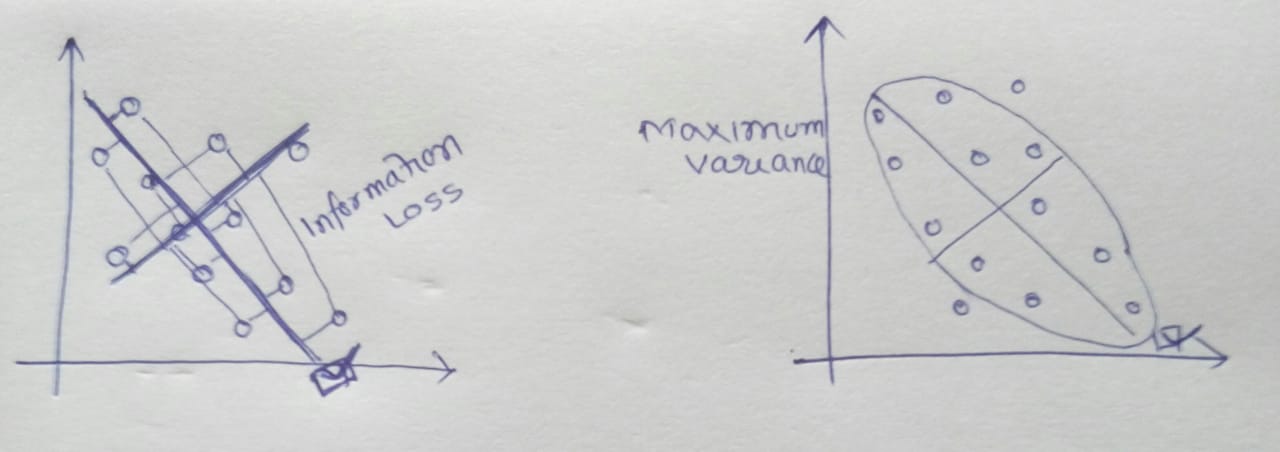 Information
Loss
Maximum
variance